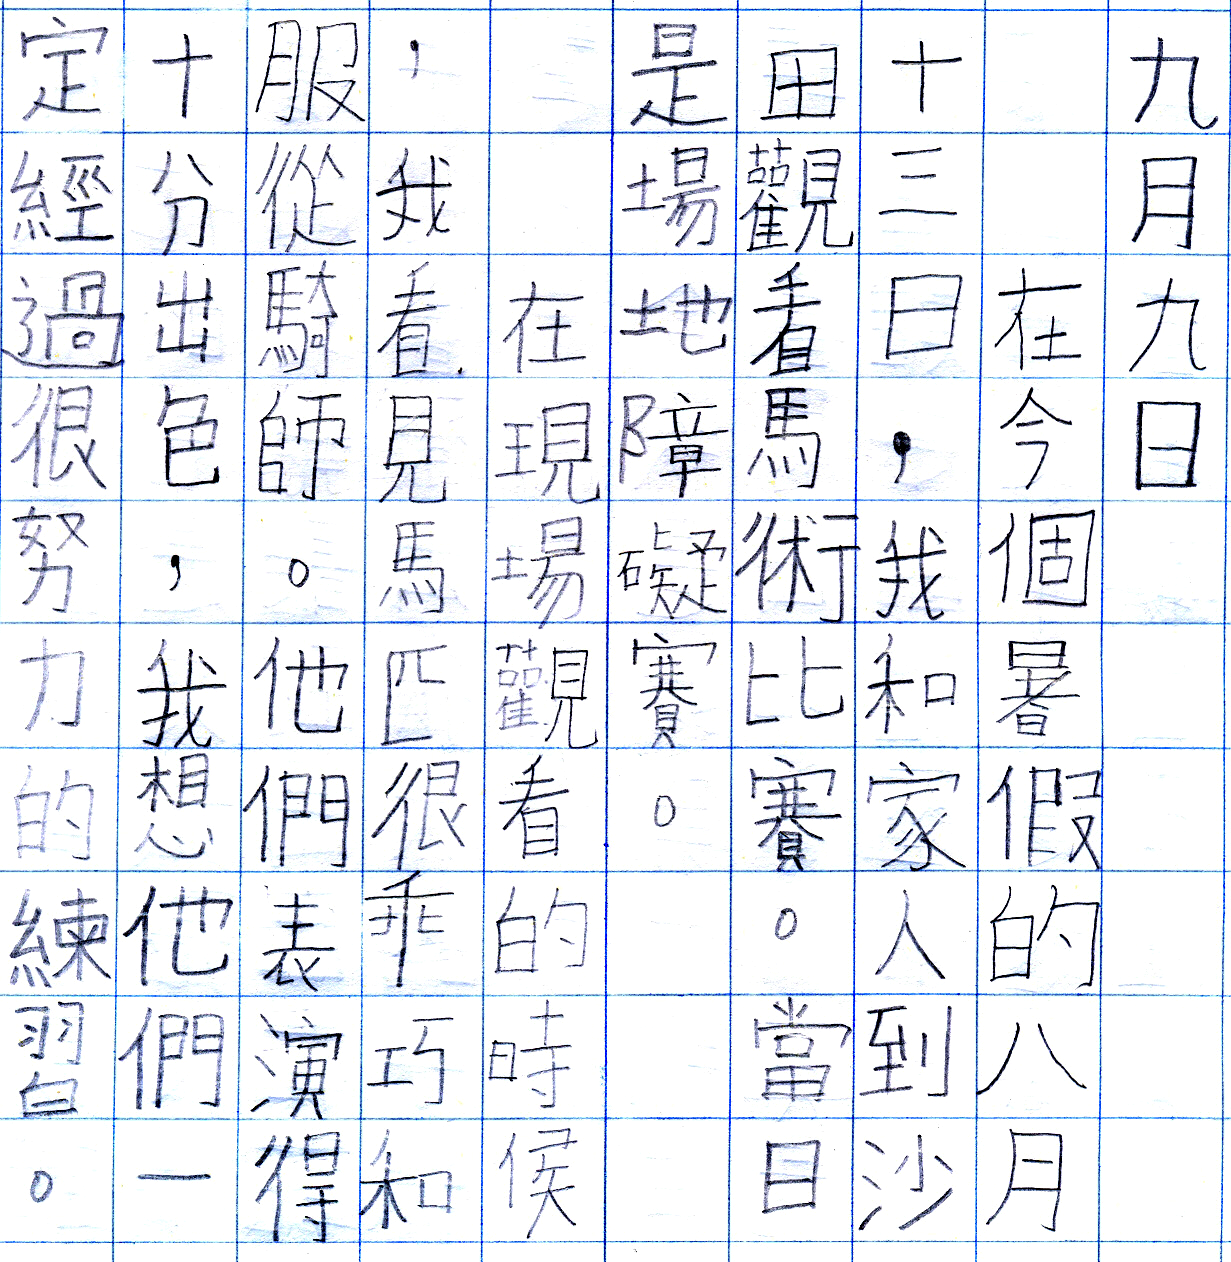 九月九日
在今個暑假的八月
十三日，我和家人到沙
田觀看馬術比賽。當日
是場地障礙賽。
在現場觀看的時侯
，我看見馬匹很乖巧和
服從騎師。他們表演得
十分出色，我想他們一
定經過很努力的練習。